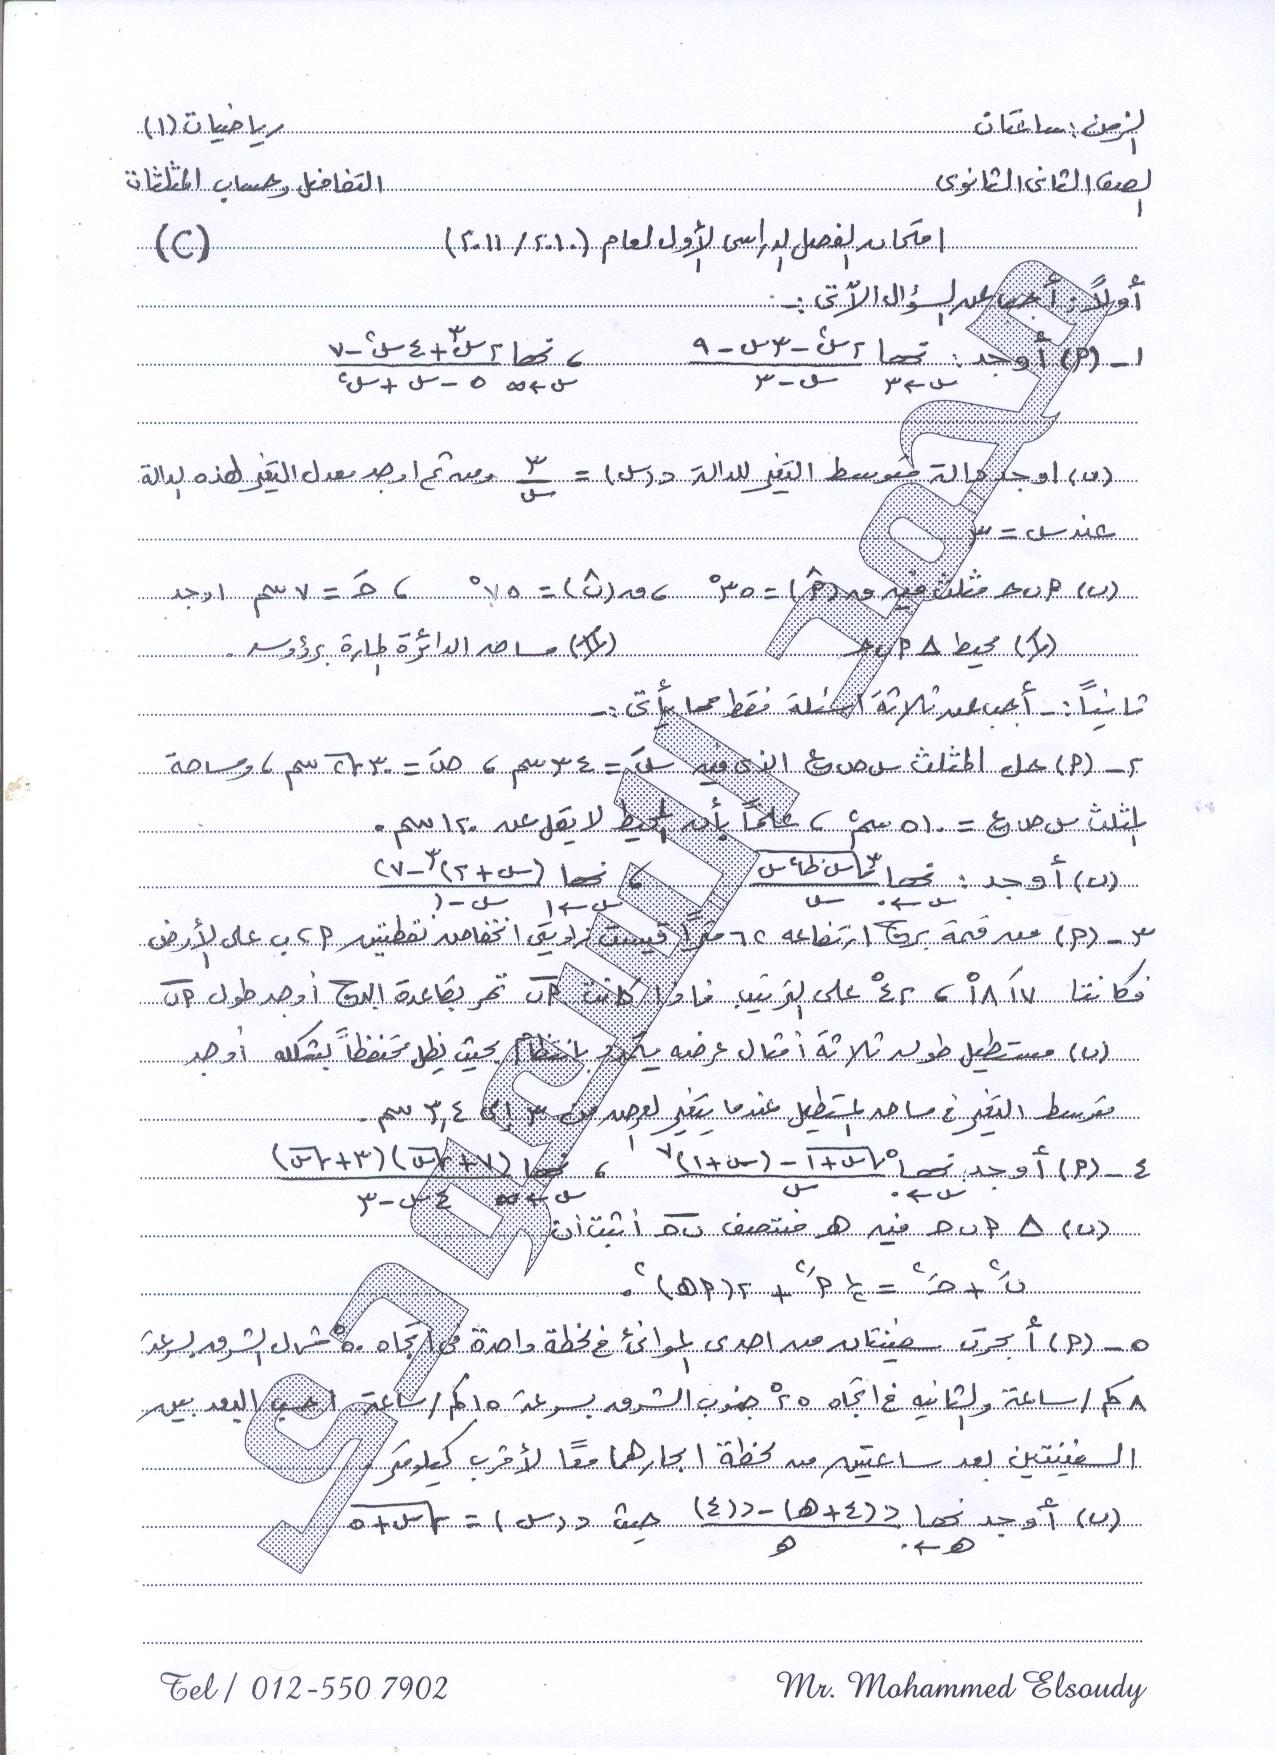 الزمن : ساعتان رياضيات (١)
الصف الثانى الثانوى التفاضل وحساب المثلثات
امتحان الفصل الدراسى الأول لعام (٢٠١٠ / ٢٠١١) (٢)
أولاً : أجب عن السؤال الآتى :-
١- (٢) أوجد : نهــا س←٣ (٢س٢ - ٣س - ٩) / (س - ٣) ، نهــا س←∞ (٢س٣ + ٤س٢ - ٧) / (٥ - س + س٢)
(ب) اوجد دالة متوسط التغير للدالة د(س) = ٣/س ومن ثم اوجد معدل التغير لهذه الدالة
عند س = ٣
(ب) ٢ ب حـ مثلث فيه ق(٢^) = ٣٥° ، ق(ب^) = ٧٥° ، حـَ = ٧ سم اوجد
محيط Δ ٢ ب حـ مساحة الدائرة المارة برؤوسه .
ثانياً :- أجب عن ثلاثة أسئلة فقط مما يأتى :-
٢- (٢) حل المثلث س ص ع الذى فيه سَ = ٣٤ سم ، صَ = ٣٠√٢ سم ، ومساحة
المثلث س ص ع = ٥١٠ سم٢ ، علماً بأن المحيط لا يقل عن ١٢٠ سم .
(ب) أوجد : نهــا س←٠ ، نهــا س←١ ((س+٢)٣ - ٧) / (س - ١)
٣- (٢) من قمة برج ارتفاعه ٦٢ متراً قيست زاويتى انخفاض نقطتين ٢ ، ب على الأرض
فكانتا ١٧َ ١٨° ، ٤٢° على الترتيب فإذا كانت ٢ب تمر بقاعدة البرج أوجد طول ٢ب
(ب) مستطيل طوله ثلاثة أمثال عرضه يتمدد بانتظام بحيث يظل محتفظاً بشكله أوجد
متوسط التغير فى مساحة المستطيل عندما يتغير العرض من ٣ إلى ٣,٤ سم .
٤- (٢) أوجد نهــا س←٠ (٥√(س+١) - (س+١)٧) / س ، نهــا س←∞ (٧+√س)(٣+√س) / (٤س - ٣)
(ب) Δ ٢ ب حـ فيه هـ منتصف ب حـ أثبت أن
بَ٢ + حـَ٢ = ١/٢ ٢َ٢ + ٢(٢هـ)٢ .
٥- (٢) أبحرت سفينتان من احدى الموانئ فى لحظة واحدة فى اتجاه ٥٠° شمال الشرق بسرعة
٨ كم/ساعة والثانيه فى اتجاه ٢٥° جنوب الشرق بسرعة ١٥ كم/ساعة احسب البعد بين
السفينتين بعد ساعتين من لحظة ابحارهما معًا لأقرب كيلومتر .
(ب) أوجد نهــا هـ←٠ (د(٤+هـ) - د(٤)) / هـ حيث د(س) = √(س+٥)
Tel / 012-550 7902 Mr. Mohammed Elsoudy